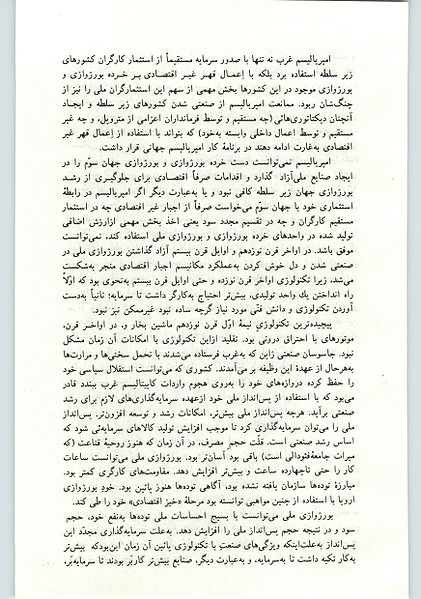 امپریالیسم غرب نه تنها با صدور سرمایه مستقیماً از استثمار کارگران کشورهای
زیر سلطه استفاده برد بلکه با اِعمـال قهـر غیـر اقتصادی بـر خـرده بورژوازی و
بورژوازی موجود در این کشورها بخش مهمی از سهم این استثمارگران ملی را نیز از
چنگ‌شان ربود. ممانعت امپریالیسم از صنعتی شدن کشورهای زیر سلطه و ایجـاد
آنچنان دیکتاتوری‌هائی (چه مستقیم و توسط فرمانداران اعزامی از متروپل، و چه غیر
مستقیم و توسط عمال داخلی وابسته به‌خود) که بتواند با استفاده از اِعمال قهر غیر
اقتصادی به‌غارت ادامه دهند در برنامهٔ کار امپریالیسم جهانی قرار داشت.
امپریالیسم نمی‌توانست دست خرده بورژوازی و بورژوازی جهان سوّم را در
ایجاد صنایع ملی‌آزاد گذارد و اقدامات صرفاً اقتصادی برای جلوگیـری از رشـد
بورژوازی جهان زیر سلطه کافی نبود و یا به‌عبارت دیگر اگر امپریالیسم در رابطهٔ
استثماری خود با جهان سوّم می‌خواست صرفاً از اجبار غیر اقتصادی چه در استثمار
مستقیم کارگران و چه در تقسیم مجدد سود یعنی اخذ بخش مهمی ازارزش اضافی
تولید شده در واحدهای خرده بورژوازی و بورژوازی ملی استفاده کند، نمی‌توانست
موفق باشد. در اواخر قرن نوزدهم و اوایل قرن بیستم آزاد گذاشتن بورژوازی ملی در
صنعتی شدن و دل خوش کردن به‌عملکرد مکانیسم اجبار اقتصادی منجر به‌شکست
می‌شد، زیرا تکنولوژی اواخر قرن نوزده و حتی اوایل قرن بیستم به‌نحوی بود که اوّلاً
راه انداختن یك واحد تولیدی، بیش‌تر احتیاج به‌کارگر داشت تا سرمایه؛ ثانیاً به‌دست
آوردن تکنولوژی و دانش فنّی مورد نیاز گرچه ساده نبود غیرممکن نیز نبود.
پیچیده‌ترین تکنولوژی نیمهٔ اوّل قرن نوزدهم ماشین بخار و، در اواخـر قـرن،
موتورهای با احتراق درونی بود. تقلید ازاین تکنولوژی با امکانات آن زمان مشکل
نبود. جاسوسان صنعتی ژاپن که به‌غرب فرستاده می‌شدند با تحمل سختی‌ها و مرارت‌ها
به‌هرحال از عهدهٔ این وظیفه بر می‌آمدند. کشوری که می‌توانست استقلال سیاسی خود
را حفظ کرده دروازه‌های خود را به‌روی هجوم واردات کاپیتالیسم غرب ببندد قادر
می‌بود که با استفاده از پس‌انداز ملی خود ازعهده سرمایه‌گذاری‌های لازم برای رشد
صنعتی برآید. هرچه پس‌انداز ملی بیش‌تر، امکانات رشد و توسعه افزون‌تر. پس‌انداز
ملی را می‌توان سرمایه‌گذاری کرد تا موجب افزایش تولید کالاهای سرمایه‌ئی شود که
اساس رشد صنعتی است. قلّت حجمِ مصرف، در آن زمان که هنوز روحیهٔ قناعت (که
میراث جامعهٔ‌فئودالی است) باقی بود آسان‌تر بود. بورژوازی ملی می‌توانست ساعات
کار را حتی تاچهارده ساعت و بیش‌تر افزایش دهد. مقاومت‌های کارگری کمتر بود.
مبارزهٔ توده‌ها سازمان یافته نشده بود، آگاهی توده‌ها هنوز پائین بود. خود بورژوازی
اروپا با استفاده از چنین مواهبی توانسته بود مرحلهٔ «خیز اقتصادی» خود را طی کند.
بورژوازی ملی می‌توانست با بسیج احساسات ملی توده‌ها به‌نفع خود، حجم
سود و در نتیجه حجم پس‌انداز ملی را افزایش دهد. به‌علت سرمایه‌گذاری مجدّد این
پس‌انداز به‌علت‌اینکه ویژگی‌های صنعتِ با تکنولوژی پائین آن زمان این‌بودکه بیش‌تر
به‌کار تکیه داشت تا به‌سرمایه، و به‌عبارت دیگر، صنایع بیش‌تر کاربَر بودند تا سرمایه‌بَر،